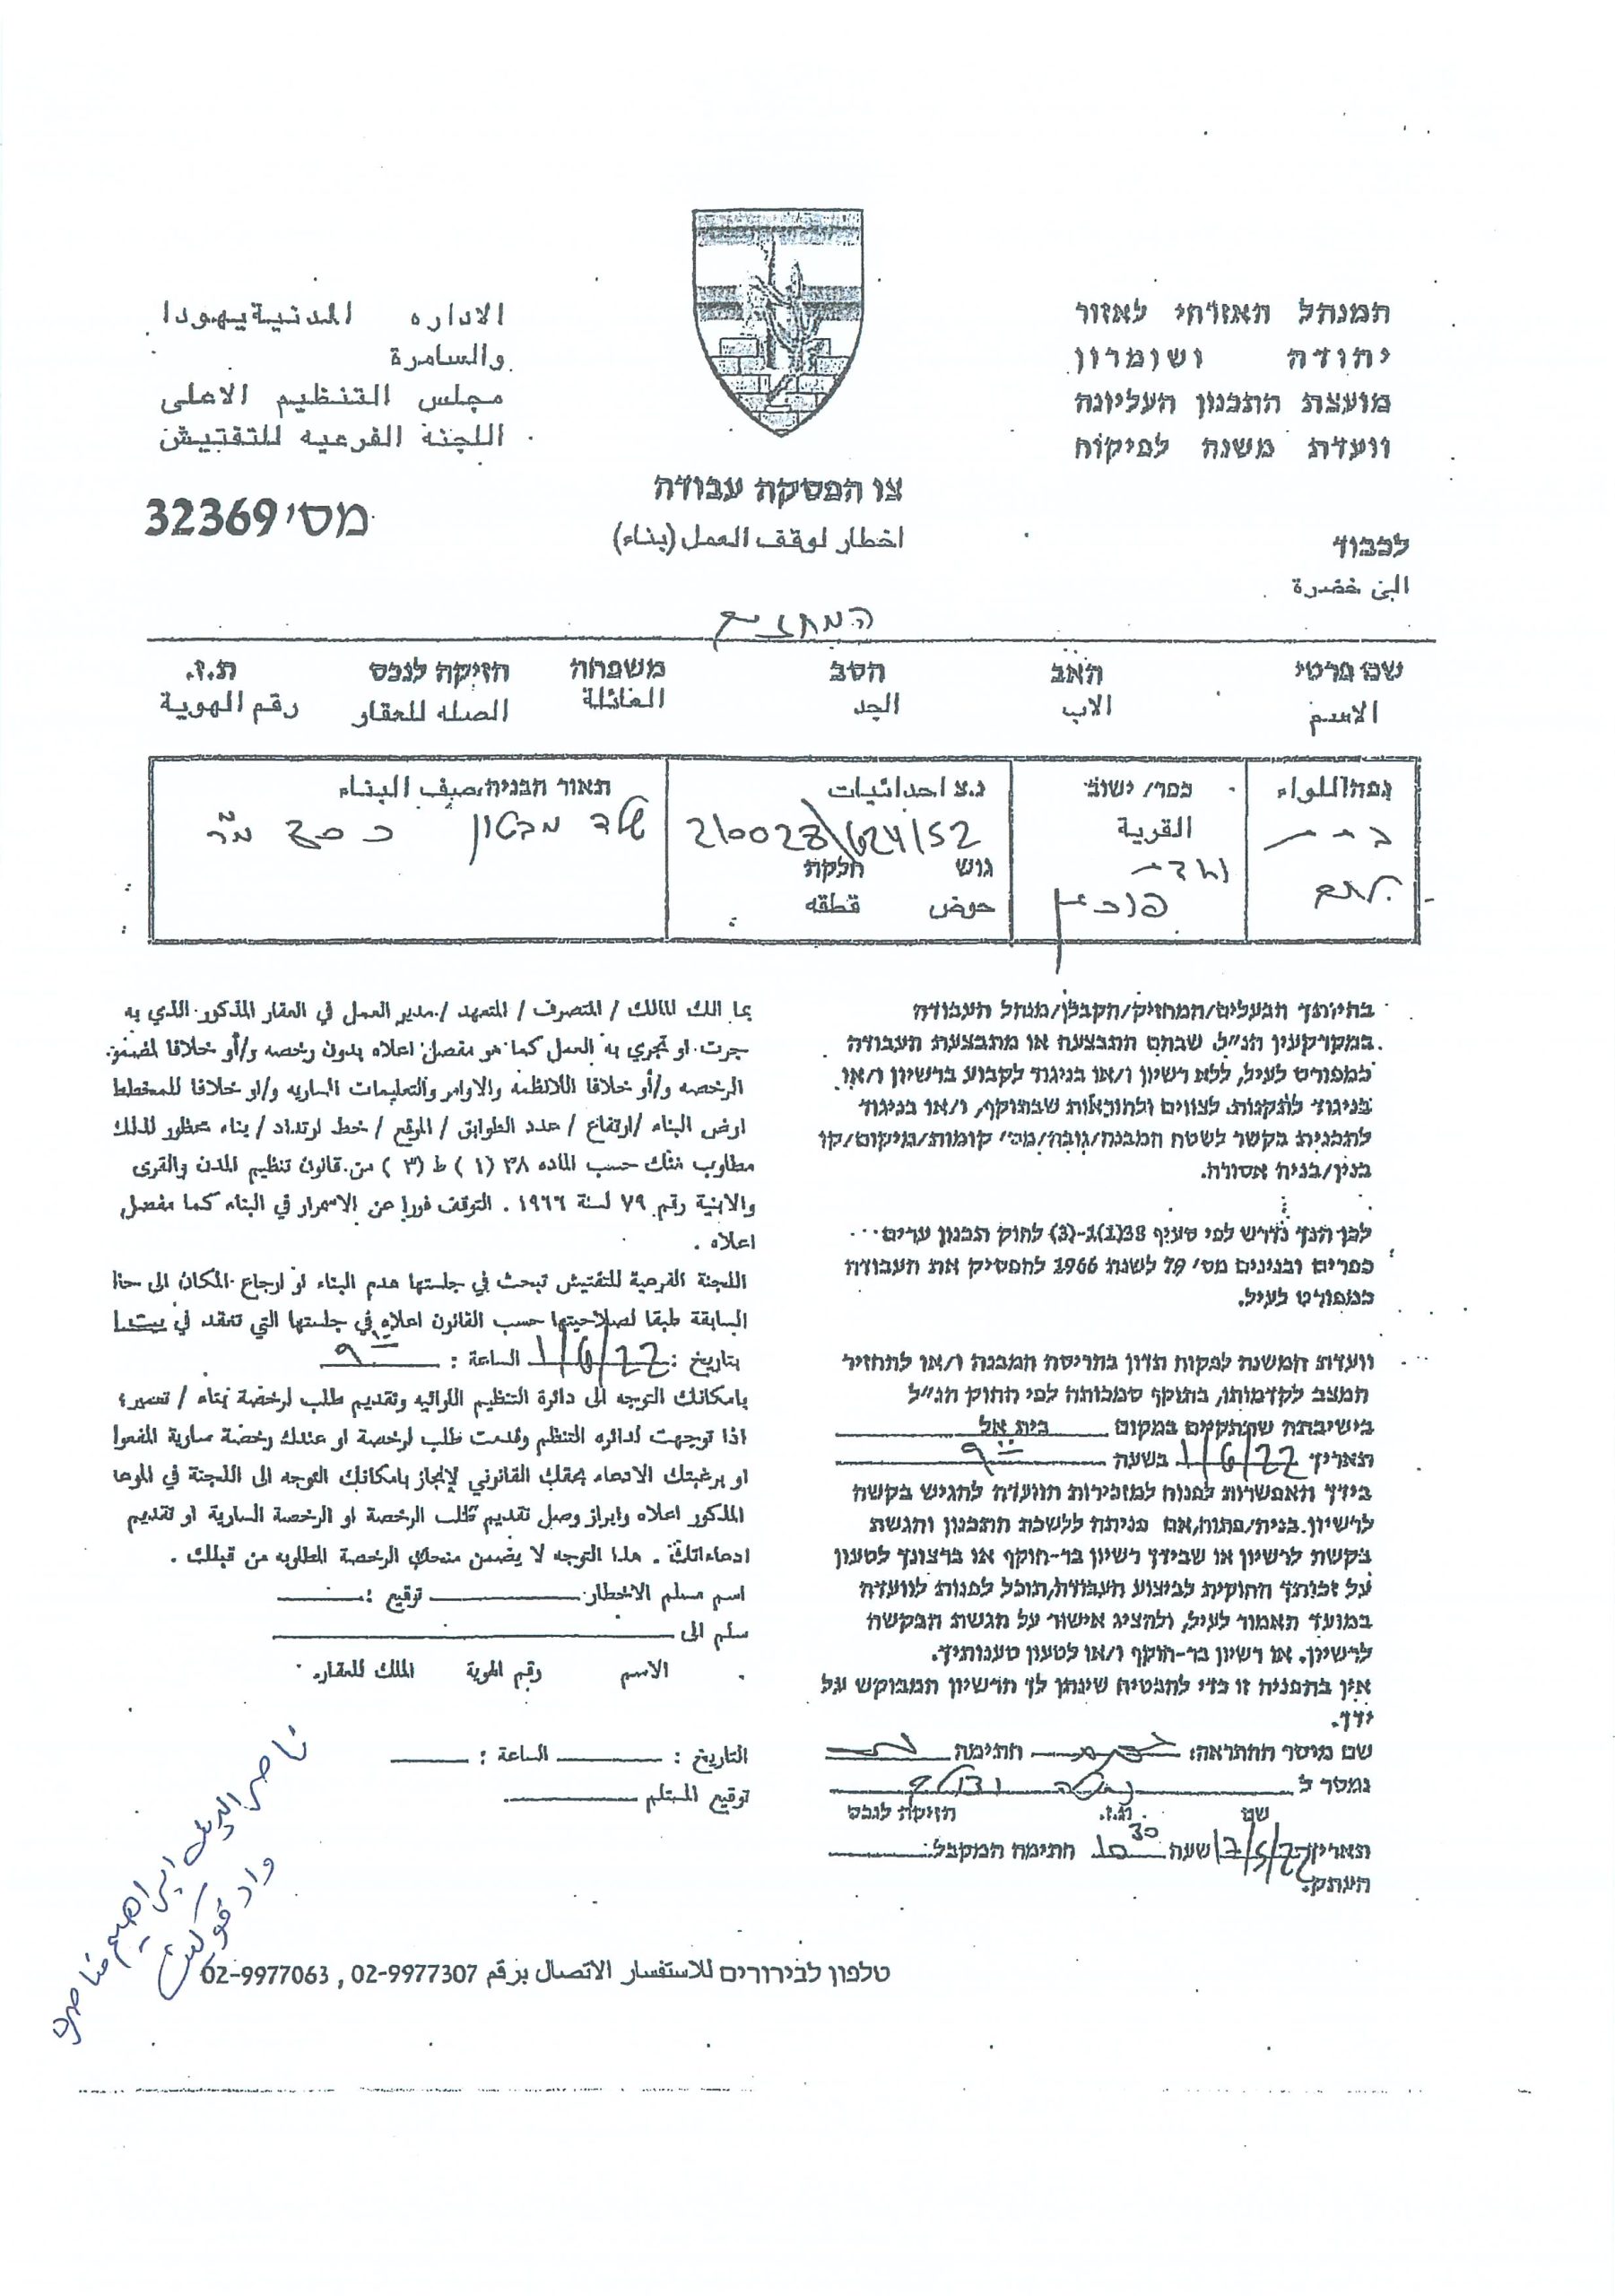 המנהל האזרחי לאזור
יהודה ושומרון
מועצת התכנון העליונה
וועדת משנה לפיקוח
الاداره المدنية يهودا
والسامرة
مجلس التنظيم الاعلى
اللجنة الفرعيه للتفتيش
צו הפסקת עבודה
اخطار لوقف العمل (بناء)
מס' 32369
לכבוד
الى حضرة
המחזיק
שם פרטי האב הסב משפחה חזיקה לנכס ת.ז.
الاسم الاب الجد العائلة الصله للعقار رقم الهوية
נפה/اللواء
בית
לחם
כפר/ ישוב
القرية
ואדי
פוכין
נ.צ احداثيات
210028/624152
גוש חלקה
حوض قطعه
תאור הבניה/صف البناء
שלד מבטון מ"ר
בהיותך הבעלים/המחזיק/הקבלן/מנהל העבודה
במקרקעין הנ"ל שבהם התבצעה או מתבצעת העבודה
כמפורט לעיל, ללא רשיון ו/או בניגוד לקבוע ברשיון ו/או
בניגוד לתקנות, לצווים ולהוראות שבתוקף, ו/או בניגוד
לתכנית בקשר לשטח המבנה/גובה/מס' קומות/מיקום/קו
בנין/בניה אסורה.
לכן הנך נדרש לפי סעיף 38(1)ג-(3) לחוק תכנון ערים
כפרים ובנינים מס' 79 לשנת 1966 להפסיק את העבודה
כמפורט לעיל.
וועדת המשנה לפקוח תדון בהריסת המבנה ו/או להחזיר
המצב לקדמותו, בתוקף סמכותה לפי החוק הנ"ל
בישיבתה שתתקיים במקום בית אל
תאריך 1/6/22 בשעה 9
בידך האפשרות לפנות למזכירות הוועדה להגיש בקשה
לרשיון בניה/פתוח, אם פניתה ללשכת התכנון והגשת
בקשת לרשיון או שבידך רשיון בר-תוקף או ברצונך לטעון
על זכותך החוקית לביצוע העבודה, תוכל לפנות לוועדה
במועד האמור לעיל, ולהציג אישור על הגשת הבקשה
לרשיון, או רשיון בר-תוקף ו/או לטעון טענותיך.
אין בהפניה זו כדי להבטיח שינתן לך הרשיון המבוקש על
ידך.
שם מוסר ההתראה: חתימה
נמסר ל
שם ת.ז. חזיקה לנכס
תאריך 17/5/22 שעה 10 30 חתימת המקבל:
העתק:
بما انك المالك / المتصرف / المتعهد / مدير العمل في العقار المذكور الذي به
جرت او تجري به العمل كما هو مفصل اعلاه بدون رخصه و/أو خلافا لمضمون
الرخصه و/أو خلافا اللانظمه والاوامر والتعليمات الساريه و/او خلافا للمخطط
ارض البناء /ارتفاع / عدد الطوابق / الموقع / خط ارتداد / بناء محظور لذلك
مطلوب منك حسب الماده ٣٨ (١) ط (٣) من قانون تنظيم المدن والقرى
والابنية رقم ٧٩ لسنة ١٩٦٦ . التوقف فورا عن الاسمرار في البناء كما مفصل
اعلاه .
اللجنة الفرعية للتفتيش تبحث في جلستها هدم البناء او ارجاع المكان الى حتا
السابقة طبقا لصلاحيتها حسب القانون اعلاه في جلستها التي تنعقد في
بتاريخ : 1/6/22 الساعة : 9
بامكانك التوجه الى دائرة التنظيم اللوائيه وتقديم طلب لرخصة بناء / تعمير؛
اذا توجهت لدائره التنظم وقدمت طلب لرخصة او عندك رخصة سارية المفعوا
او برغبتك الادعاء بحقك القانوني لإنجاز بامكانك التوجه الى اللجنة في الموعا
المذكور اعلاه وابراز وصل تقديم طلب الرخصة او الرخصة السارية او تقديم
ادعاءاتك . هذا التوجه لا يضمن منحك الرخصة المطلوبه من قبلك .
اسم مسلم الاخطار: توقيع :
سلم الى
الاسم رقم الهوية المالك للعقار.
التاريخ : الساعة :
توقيع المستلم
ناصر الدين ابراهيم مناصرة
واد فوكين
טלפון לבירורים للاستفسار الاتصال برقم 02-9977307 , 02-9977063